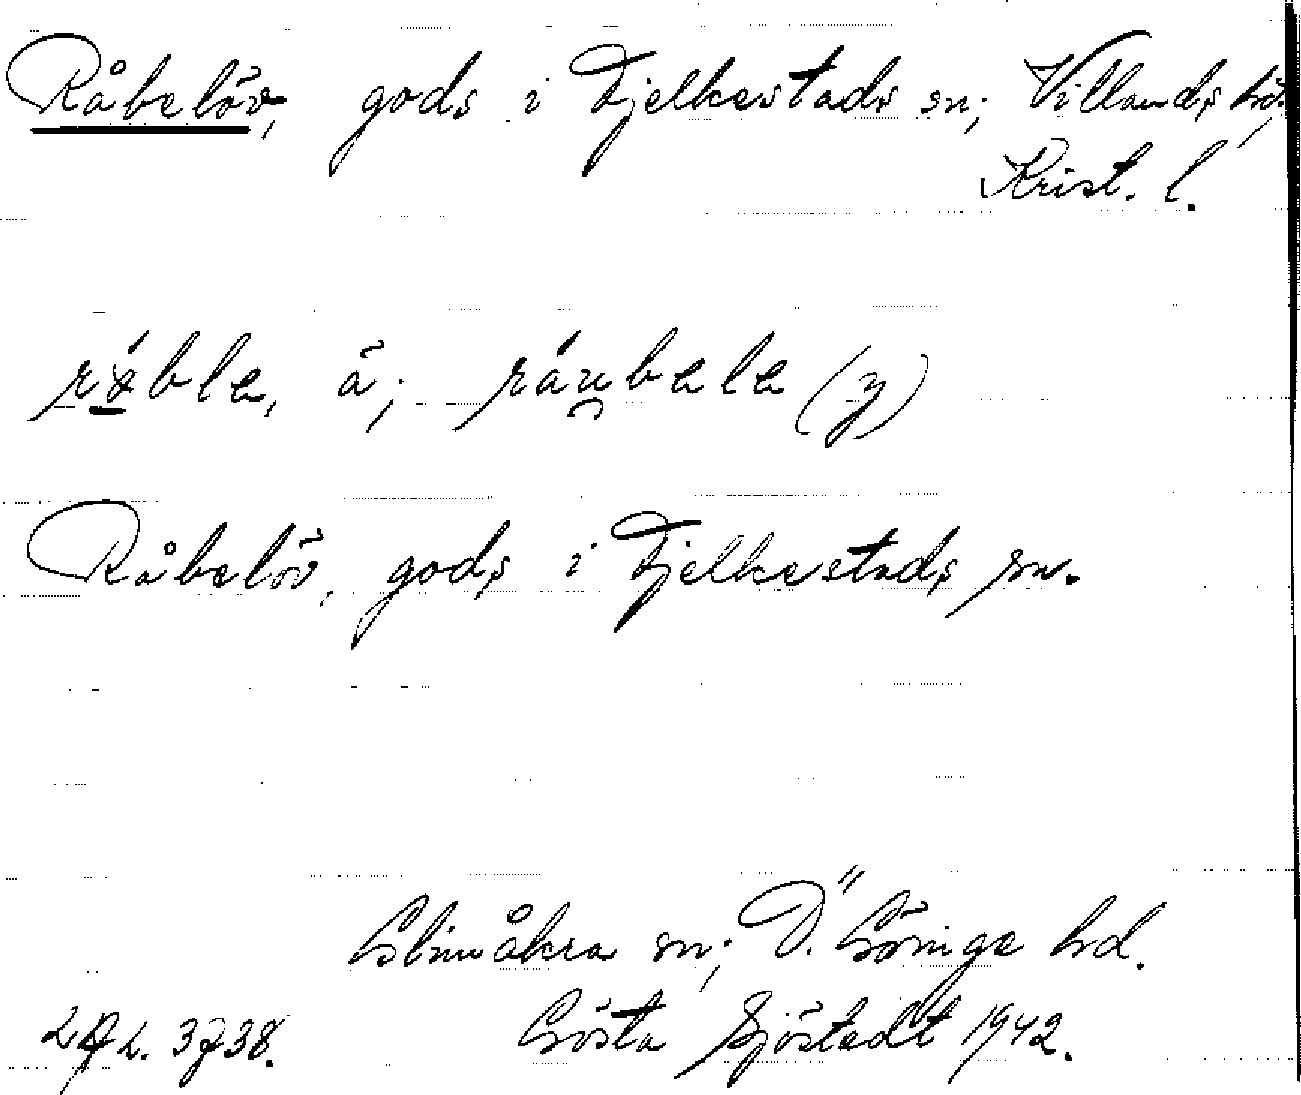 Råbelöv, gods i Fjelkestads sn; Villands hd.
Krist. l.
å;
Råbelöv, gods i Fjelkestads sn.
Glimåkra sn; Ö. Göinge hd.
Gösta Sjöstedt 1942.